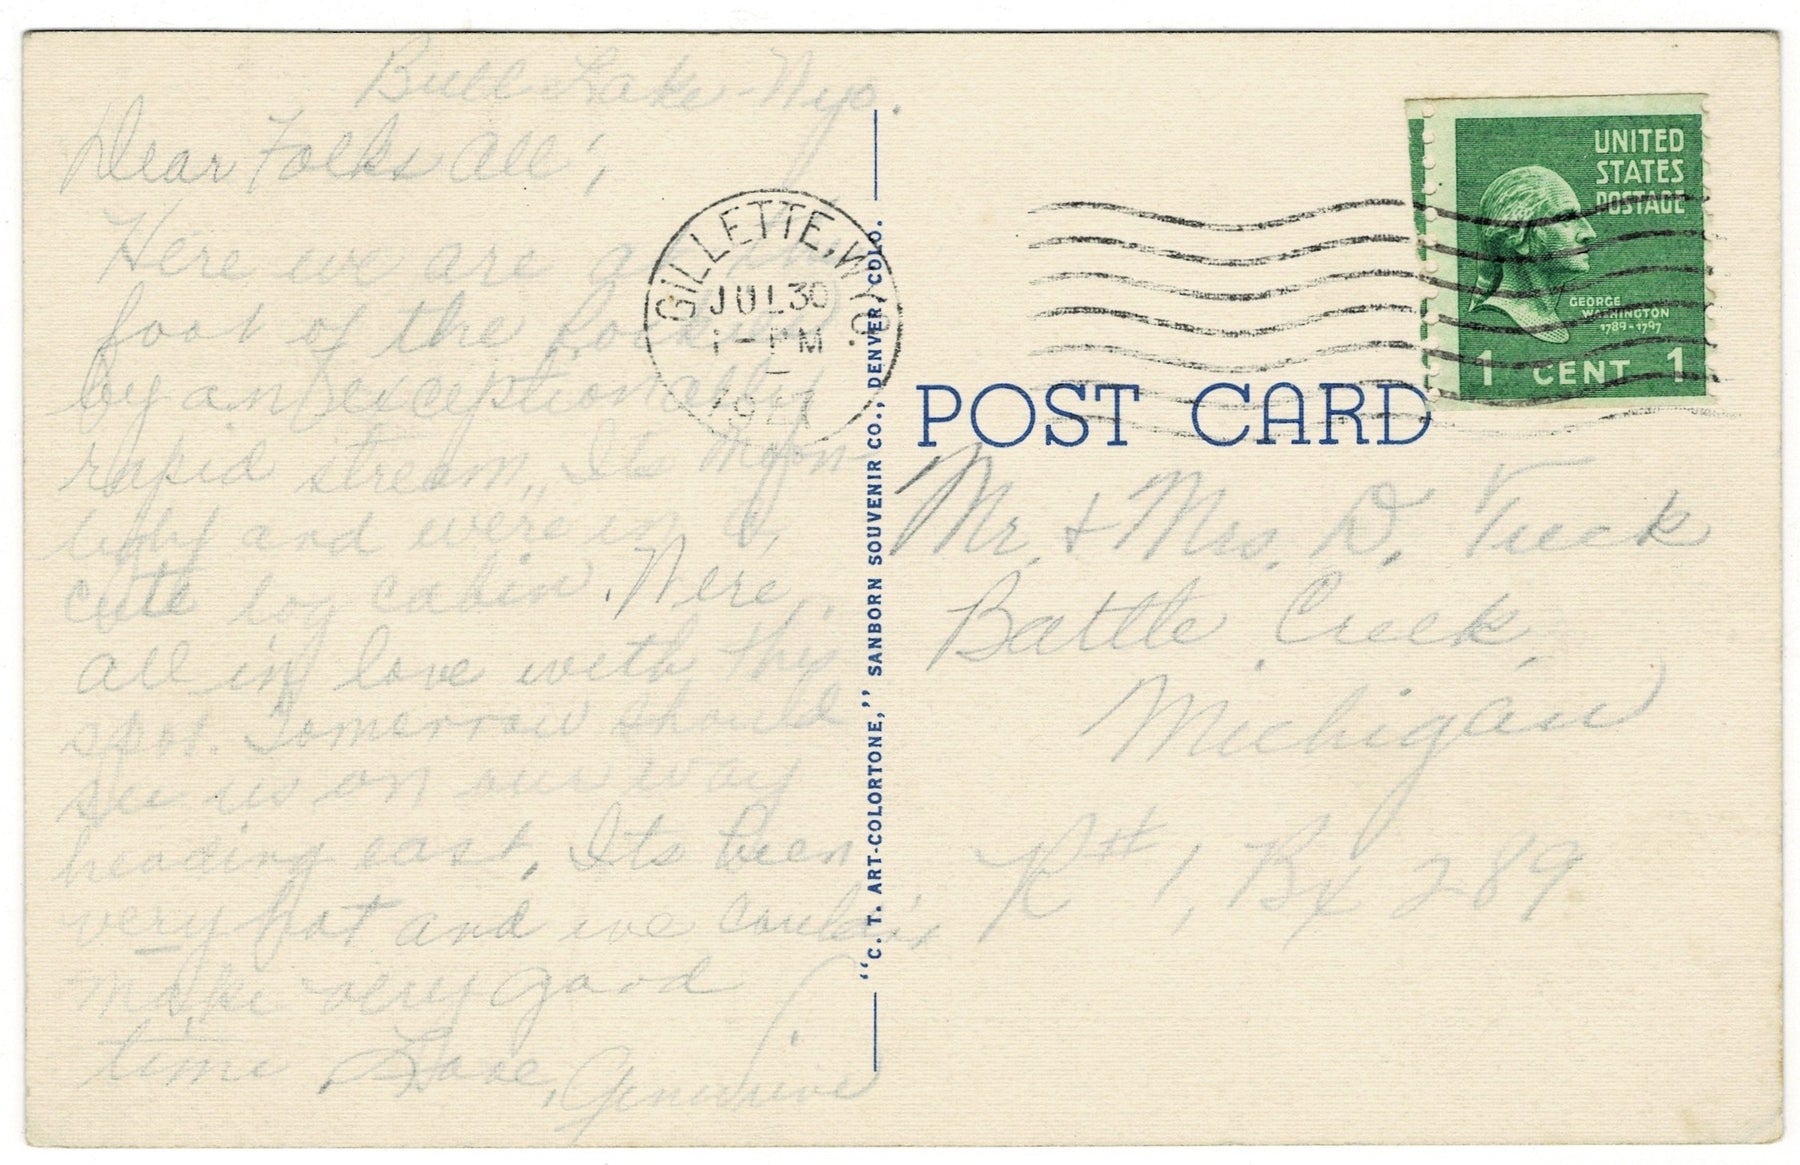 Bull Lake Wyo.
Dear Folks all,
Here we are at the
foot of the Rockies
by an exceptionally
rapid stream, Its Moon-
light and were in a
cute log cabin. Were
all in love with this
spot. Tomorrow should
see us on our way
heading east. Its been
very hot and we couldn't
make very good
time Love, Genevieve
GILLETTE, WYO.
JUL 30
1 - PM
"C. T. ART-COLORTONE," SANBORN SOUVENIR CO., DENVER, COLO.
UNITED
STATES
POSTAGE
GEORGE
WASHINGTON
1789-1797
1 CENT 1
POST CARD
Mr. & Mrs. D.
Battle Creek
Michigan
R# 1, Bx 289